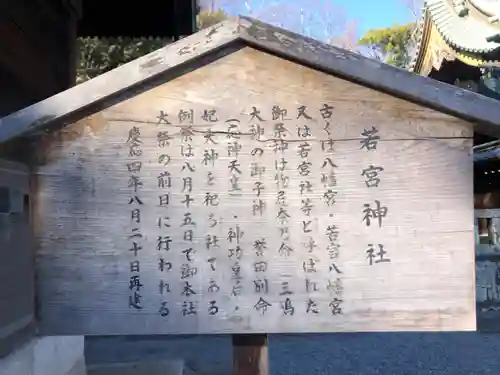 若宮神社
古くは八幡宮・若宮八幡宮
又は若宮社等と呼ばれた
御祭神は物忌奈乃命 三嶋
大神の御子神 誉田別命
(応神天皇)・神功皇后・
妃大神を祀る社である
例祭は八月十五日で御本社
大祭の前日に行われる
慶応四年八月二十日再建